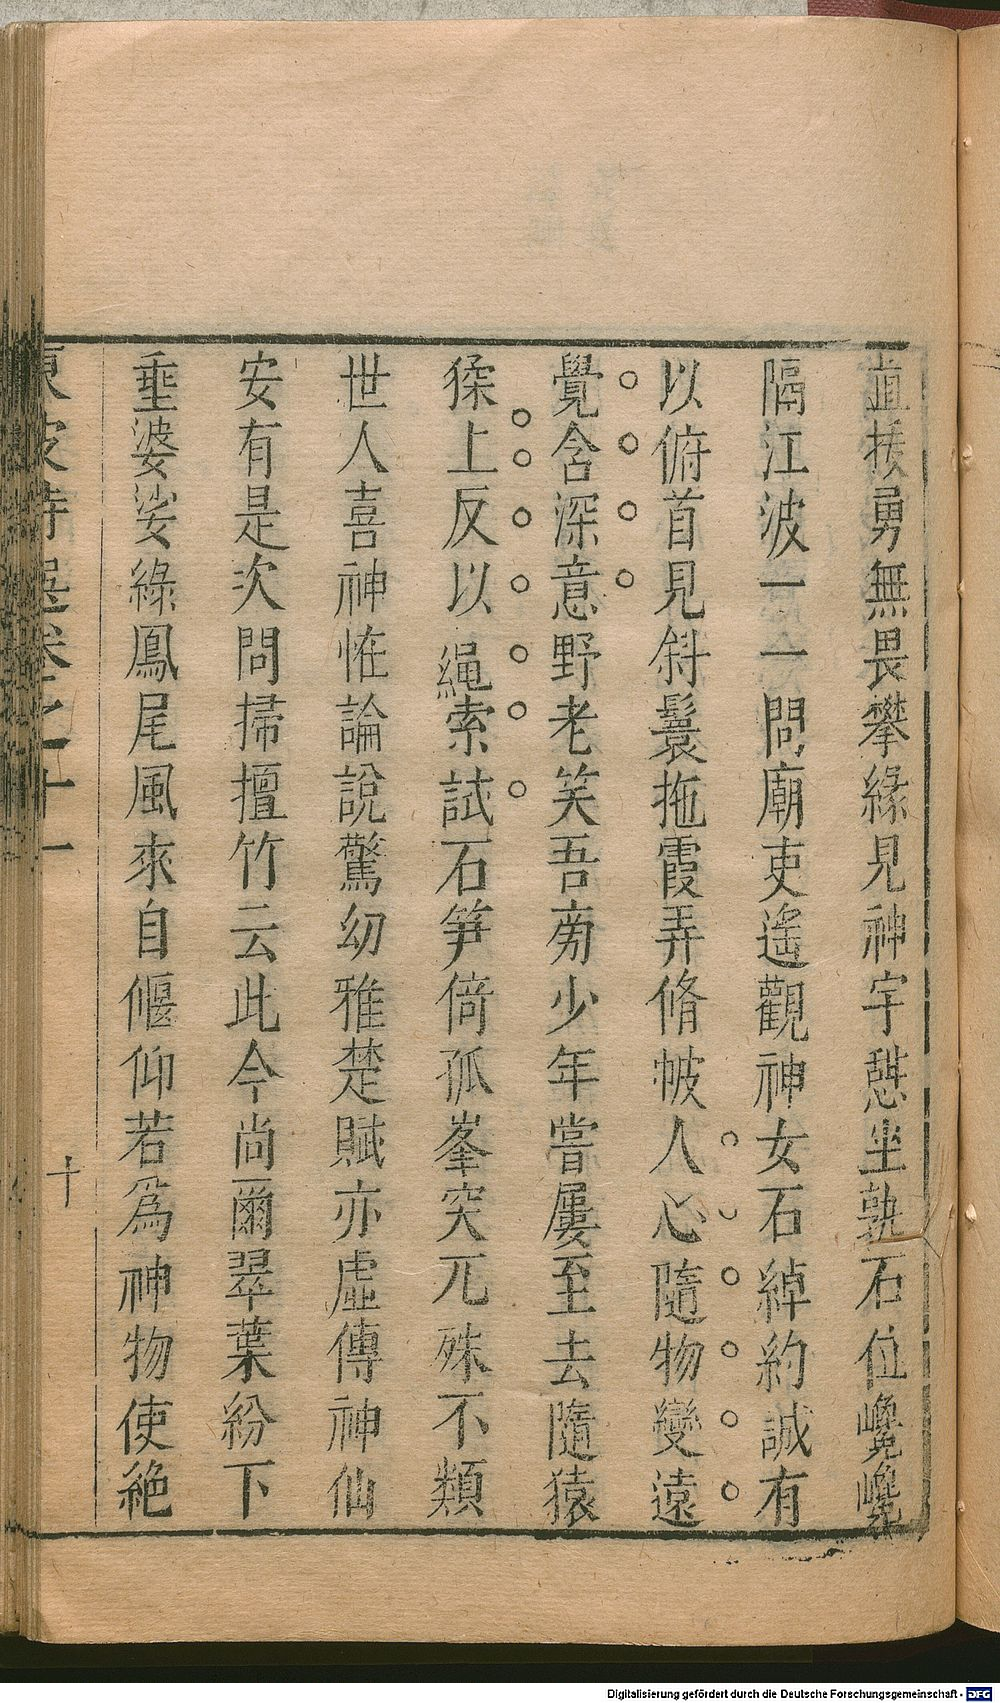 直援勇無畏攀緣見神宇憇坐孰石位巉巉
隔江波一一問廟吏遙觀神女石綽約誠有
以俯首見斜鬟拖霞弄脩帔人心隨物變遠
覺含深意野老笑吾旁少年嘗屢至去隨猿
猱上反以繩索試石笋倚孤峯突兀殊不類
世人喜神恠論說驚幼稚楚賦亦虛傳神仙
安有是次問掃擅竹云此今尚爾翠葉紛下
垂婆娑綠鳳尾風來自偃仰若爲神物使絕
東坡詩選卷之十一
十
Digitalisierung gefördert durch die Deutsche Forschungsgemeinschaft - DFG